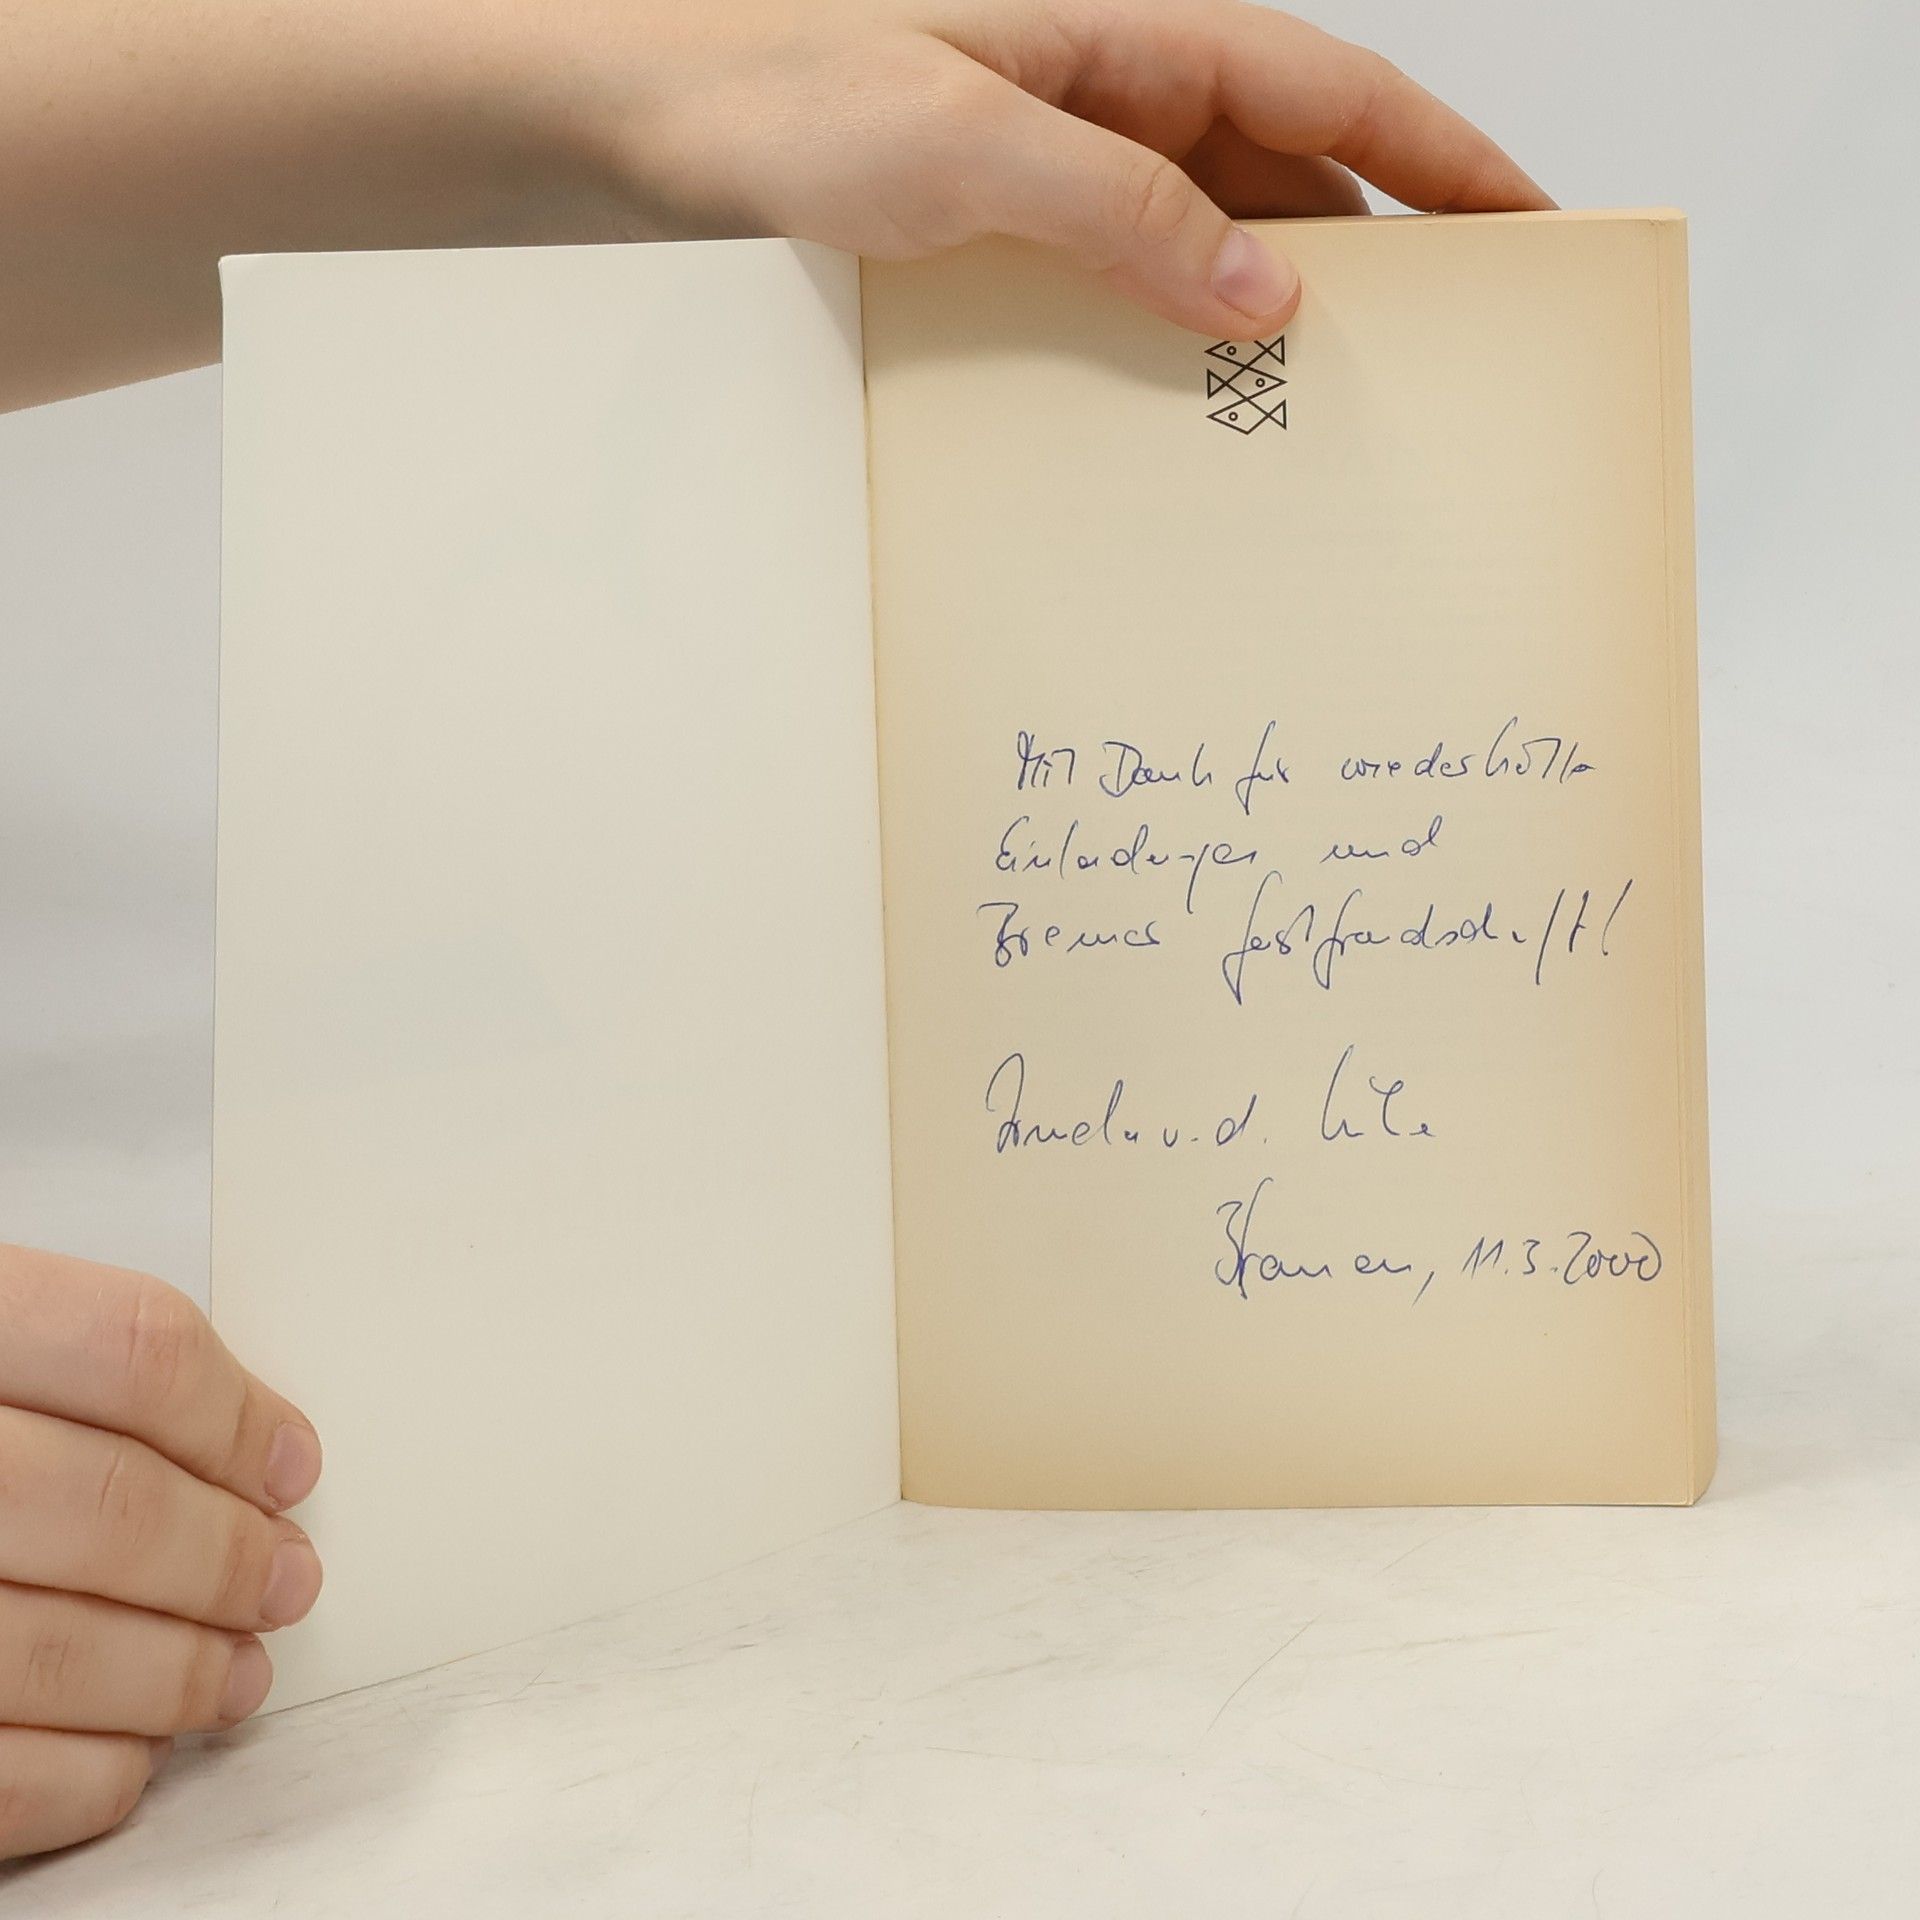 Mit Dank für wiederholte
Einladungen und
Bremer Gastfreundschaft!
v. d.
Bremen, 11.3.2000